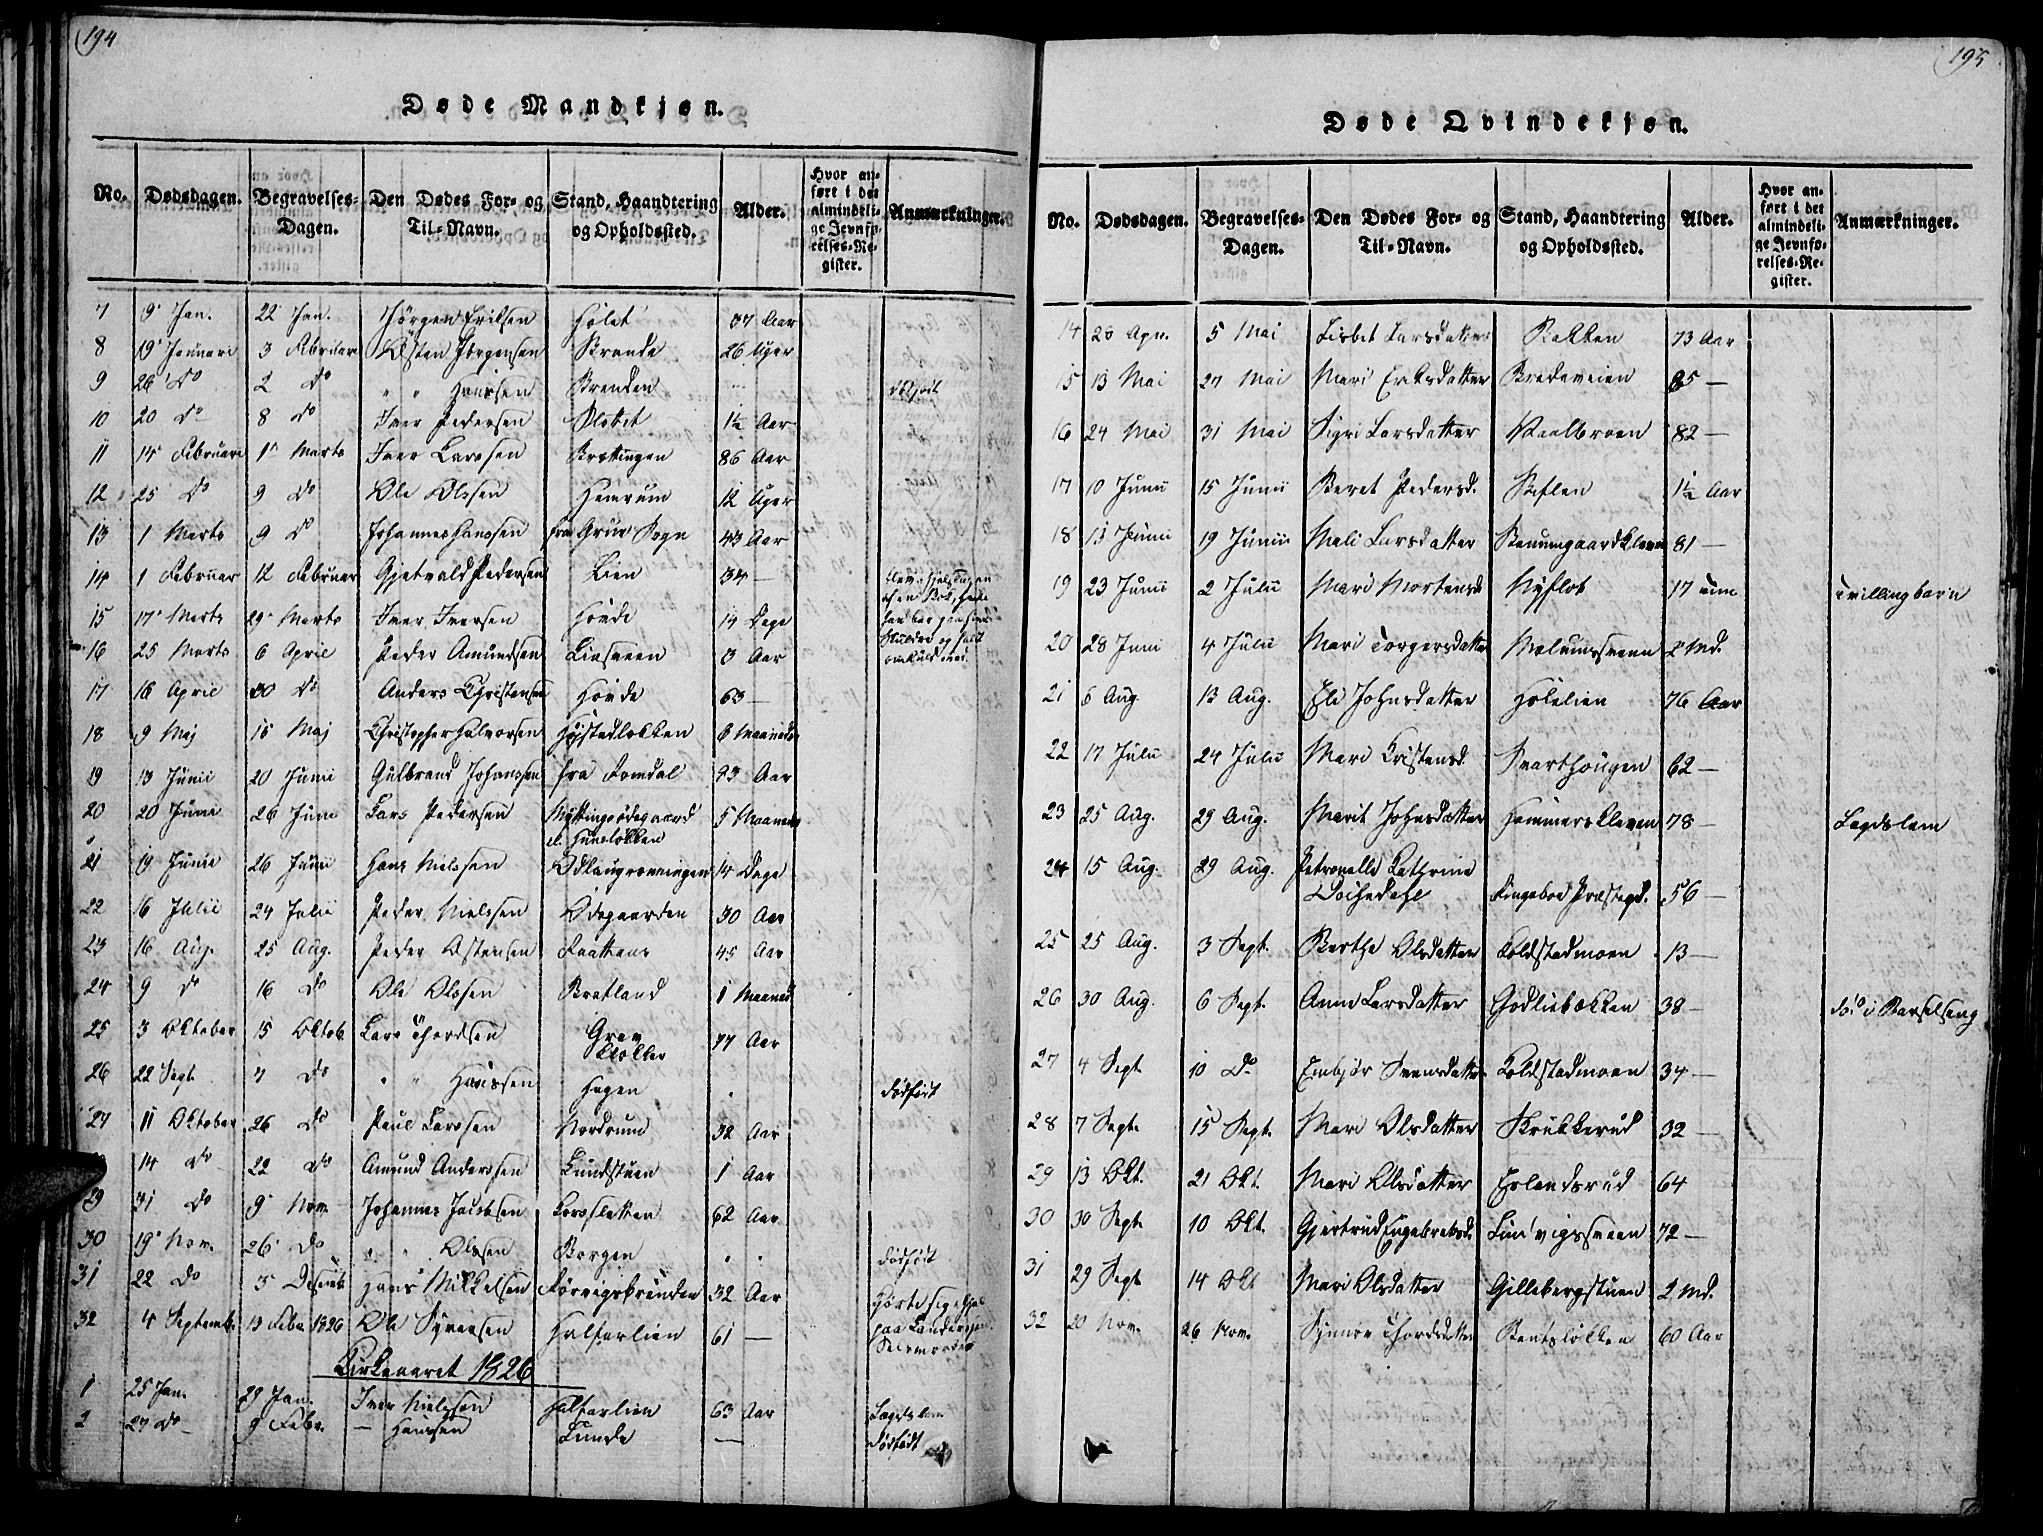 194
Døde Mandkjøn.
No. Dødsdagen. Begravelses-Dagen. Den Dødes For- og Til-Navn. Stand, Haandtering og Opholdssted. Alder. Hvor anført i det almindelige Jevnførelses-Register. Anmærkninger.
7 9 Jan. 22 Jan. Jørgen Erilsen Holet 37 Aar
8 19 Januari 3 Februar Østen Jørgensen Strande 26 Uger
9 26 Do 2 Do " " Hanssen Brenden dødfødt
10 20 Do 8 Do Iver Pedersen Slobet 1½ Aar
11 14 Februari 1 Marts Iver Larssen Brettingen 86 Aar
12 25 Do 9 Do Ole Olssen Hemrum 12 Uger
13 1 Marts 9 Do Johannes Hanssen fra Grue Sogn 43 Aar
14 1 Februar 12 Februar Gjetvald Pedersen Lien 34 —
15 17 Marts 29 Marts Iver Iversen Hovde 14 Dage
16 25 Marts 6 April Peder Amundsen Linsveen 3 Aar
17 16 April 30 Do Anders Christensen Hovde 63 —
18 9 Maj 15 Maj Christopher Halvorsen Højstadløkken 6 Maaneder
19 13 Junii 20 Junii Gulbrand Johanssen fra Romdal 93 Aar
20 20 Junii 26 Junii Lars Pedersen Myttingsødegaard 5 Maaneder
el. Hunsløkken
21 19 Junii 26 Junii Hans Nielssen Odlaugrønningen 14 Dage
22 16 Julii 24 Julii Peder Nielssen Ødegaarden 30 Aar
23 16 Aug. 25 Aug. Peder Østensen Frættens 45 Aar
24 9 do 16 Do Ole Olssen Bratland 1 Maaned
25 3 Oktober 15 Oktob. Lars Thordsen Grav Kolloe 77 Aar
26 22 Sept. 7 Do " " Hanssen Hagen dødfødt
27 11 Oktober 26 Do Paul Larssen Nordrum 32 Aar
14 do 22 Do Amund Anderssen Lundstuen 1 Aar
29 31 Do 9 Nov. Johannes Jacobsen Korssletten 62 Aar
30 19 Nov. 26 Do " " Olssen Borgen dødfødt
31 22 Do 3 Decemb. Hans Mikkelsen Forvigsbrenden 32 Aar
32 4 Septemb. 13 Febr. 1826 Ole Syversen Halfarlien 61 —
Kirkeaaret 1826
1 25 Jan. 29 Jan. Iver Nielssen Halfarlien 63 Aar Lægdslem
2 27 Do 9 Febr. — Hanssen Lunde — dødfødt
195
Døde Qvindekjøn.
No. Dødsdagen. Begravelses-Dagen. Den Dødes For- og Til-Navn. Stand, Haandtering og Opholdssted. Alder. Hvor anført i det almindelige Jevnførelses-Register. Anmærkninger.
14 28 Apr. 5 Mai Lisbet Larsdatter Bakken 73 Aar
15 13 Mai 27 Mai Mari Eriksdatter Bredeveien 85 —
16 24 Mai 31 Mai Sigri Larsdatter Vaalbroen 82 —
17 10 Junii 15 Junii Beret Pedersd. Reflen 1½ Aar
18 13 Junii 19 Junii Mali Larsdatter Staumgaardkleven 81 —
19 23 Junii 2 Julii Mari Mortensd. Nyflot 17 Tim Tvillingbarn
20 28 Juni 4 Julii Mari Torgersdatter Melumssveen 2 Md.
21 6 Aug. 13 Aug. Eli Johnsdatter Hølelien 76 Aar
22 17 Julii 24 Julii Mari Kristensd. Svarthougen 62 —
23 25 Aug. 29 Aug. Marit Johnsdatter Hammerskleven 78 — Lægdslem
24 15 Aug. 29 Aug. Petronelle Kathrine Ringeboe Præstegd. 56 —
25 25 Aug. 3 Sept. Berthe Olsdatter Koldstadmoen 13 —
26 30 Aug. 6 Sept. Anne Larsdatter Godliebakken 38 — død i Barselseng
27 4 Sept 10 Do Embjør Svensdatter Koldstadmoen 34 —
28 7 Sept. 15 Sept. Mari Olsdatter Krukkerud 32 —
29 13 Okt. 21 Okt. Mari Olsdatter Erlandsrud 64
30 30 Sept 10 Okt. Gjertrud Engebretsd. Lundvigssveen 72 —
31 29 Sept 14 Okt Mari Olsdatter Gillebergstuen 2 Md.
32 20 Nov. 26 Nov. Synnøv Thordsdatter Bentsløkken 60 Aar